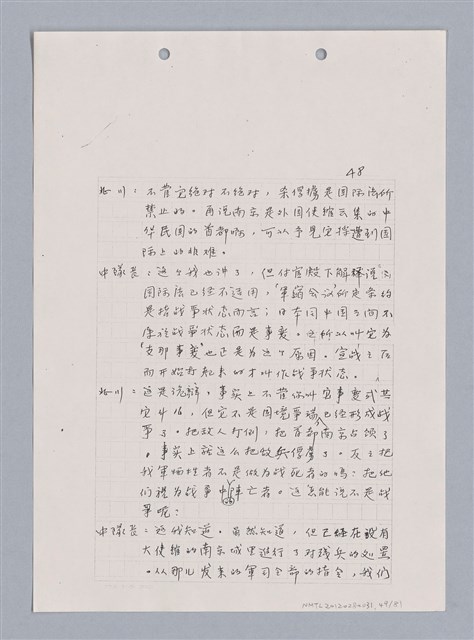 48
谷川：不管它绝对不绝对，杀俘掳是国际法所
禁止的。再说南京是外国使馆云集的中
华民国的首都啊，可以予见它将遭到国
际上的非难。
中隊長：这个我也讲了，但付官殿下解释道：“
国际法已经不适用，‘軍缩会议’所定条约
是指战争状态而言；日本同中国之间不
存在战争状态而是事变。之所以叫它为
‘支那事变’也正是为这个原因。宣战之后
而开始打起来的才叫作战争状态。
谷川：这是诡辩。事实上不管你叫它事变或其
它什么，但它不是国境事端，已经形成战
事了。把敌人打倒，把首都南京占领了
。事实上就这么把敌兵俘虏了。反之把
我軍牺牲者不是做为战死者的吗：把他
们视为战争中的阵亡者。这怎能说不是战
争呢：
中隊長：这我知道。虽然知道，但已经在设有
大使馆的南京城里进行了对残兵的处置
。从那儿发来的軍司令部的指令，我们
NMTL20120020031, 49/81